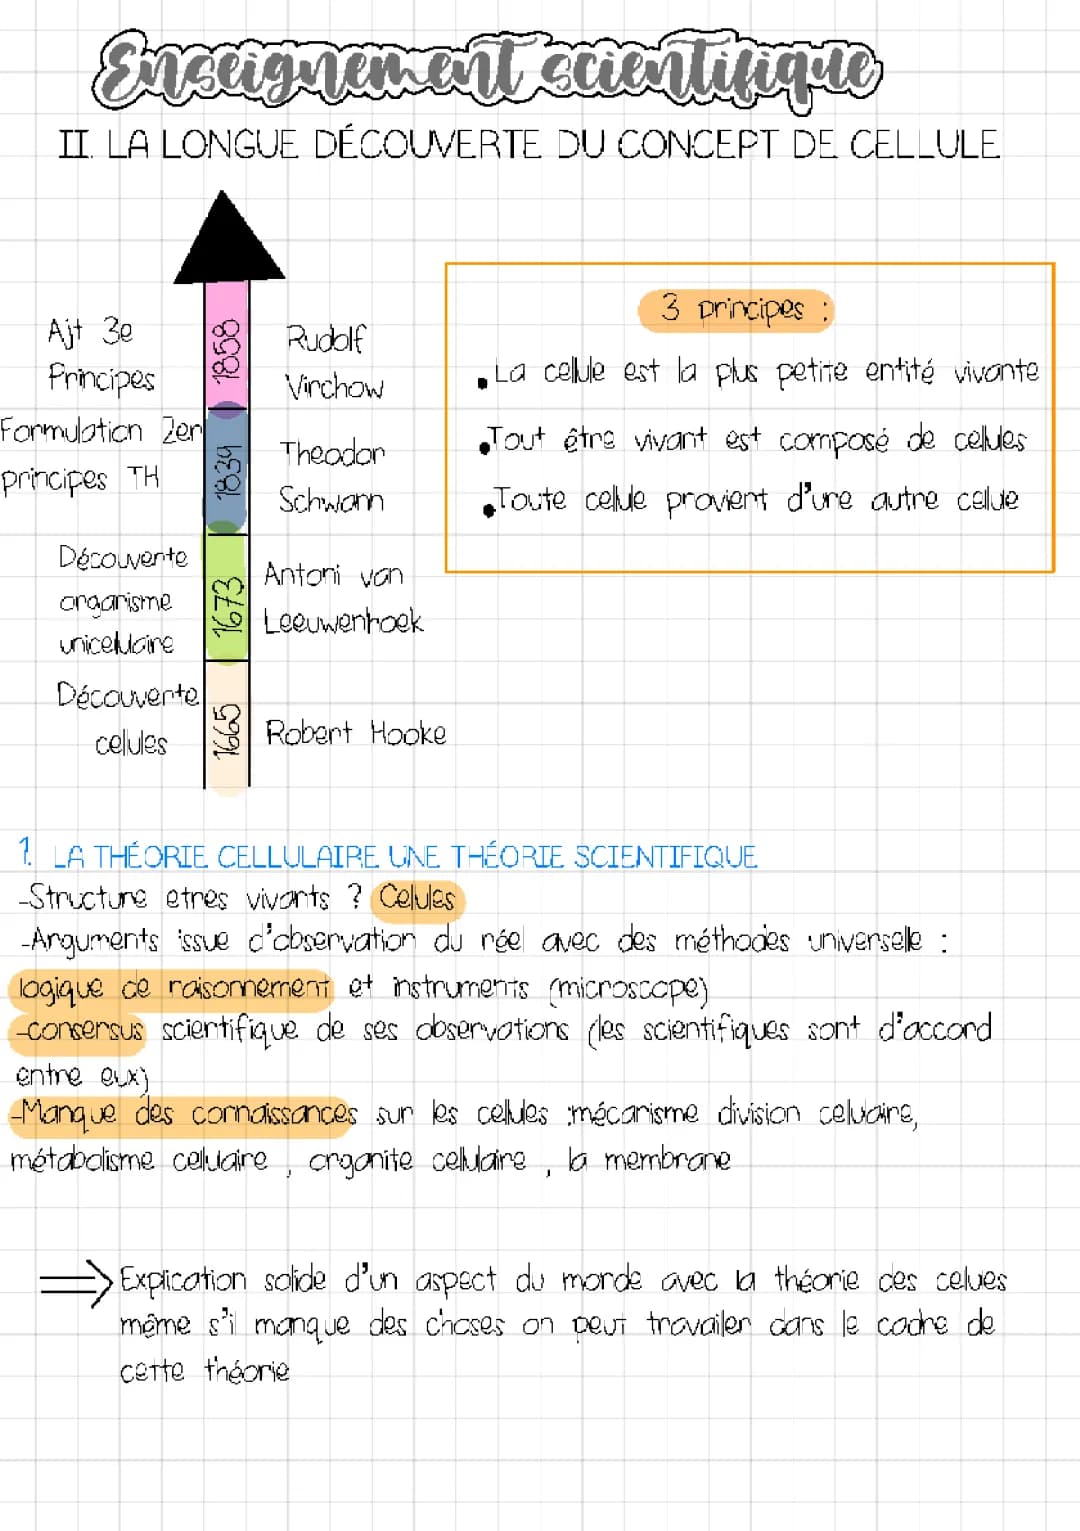 Enseignement scientifique
II. LA LONGUE DÉCOUVERTE DU CONCEPT DE CELLULE
Ajt 3e
Principes
1858
Rudolf
Virchow
Formulation 2er
principes TH
1839
Theodor
Schwann
Découverte
organisme
unicellulaire
1673
Antoni van
Leeuwenhoek
Découverte
cellules
1665
Robert Hooke
3 principes :
• La cellule est la plus petite entité vivante
• Tout être vivant est composé de cellules
• Toute cellule provient d'une autre cellule
1. LA THÉORIE CELLULAIRE UNE THÉORIE SCIENTIFIQUE
-Structure etres vivants ? Cellules
-Arguments issue d'observation du réel avec des méthodes universelle :
logique de raisonnement et instruments (microscope)
-consensus scientifique de ses observations (les scientifiques sont d'accord
entre eux)
-Manque des connaissances sur les cellules :mécanisme division cellulaire,
métabolisme cellulaire , organite cellulaire , la membrane
⇒ Explication solide d'un aspect du monde avec la théorie des cellules
même s'il manque des choses on peut travailler dans le cadre de
cette théorie